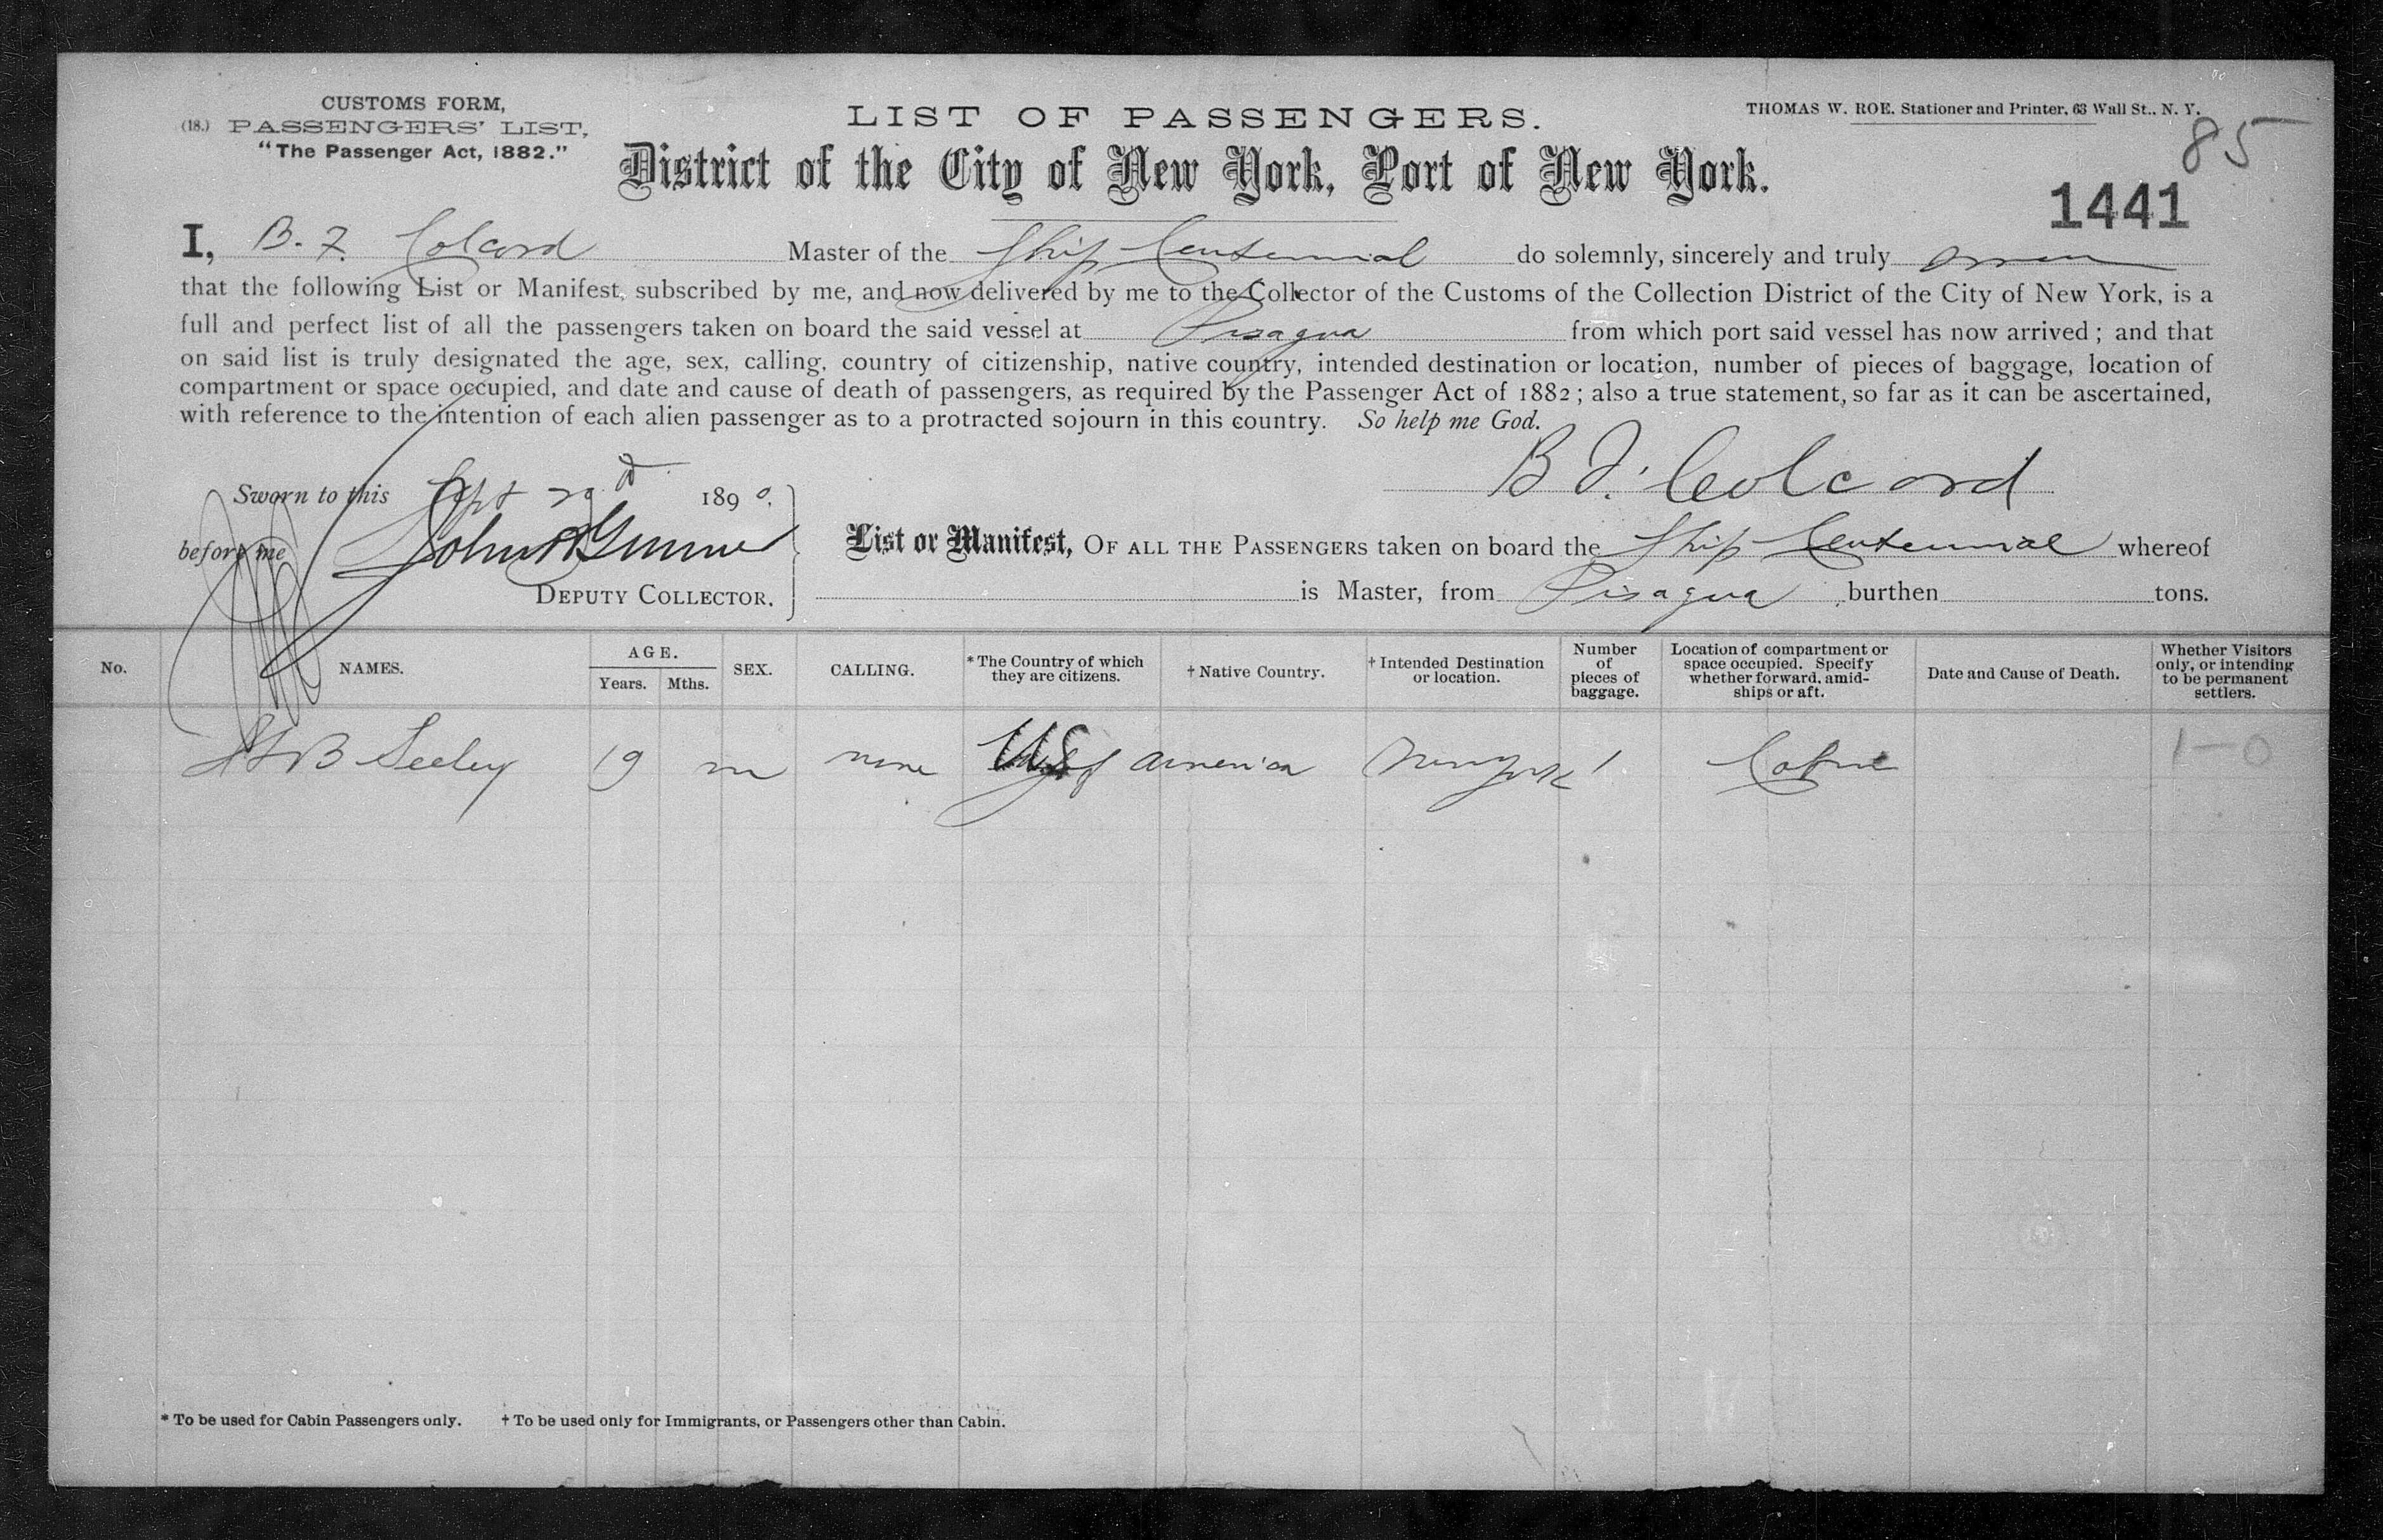 CUSTOMS FORM,
(18.) PASSENGERS' LIST,
"The Passenger Act, 1882."
LIST OF PASSENGERS.
THOMAS W. ROE. Stationer and Printer, 63 Wall St., N. Y.
85
District of the City of New York, Port of New York.
1441
I, B. F. Colcord Master of the Ship Centennial do solemnly, sincerely and truly
that the following List or Manifest, subscribed by me, and now delivered by me to the Collector of the Customs of the Collection District of the City of New York, is a
full and perfect list of all the passengers taken on board the said vessel at Pisagua from which port said vessel has now arrived; and that
on said list is truly designated the age, sex, calling, country of citizenship, native country, intended destination or location, number of pieces of baggage, location of
compartment or space occupied, and date and cause of death of passengers, as required by the Passenger Act of 1882; also a true statement, so far as it can be ascertained,
with reference to the intention of each alien passenger as to a protracted sojourn in this country. So help me God.
B F. Colcord
Sworn to this Sept 1890.
before me John
DEPUTY COLLECTOR.
List or Manifest, OF ALL THE PASSENGERS taken on board the Ship Centennial whereof
is Master, from Pisagua burthen tons.
No. NAMES. AGE. Years. Mths. SEX. CALLING. *The Country of which they are citizens. †Native Country. †Intended Destination or location. Number of pieces of baggage. Location of compartment or space occupied. Specify whether forward, amidships or aft. Date and Cause of Death. Whether Visitors only, or intending to be permanent settlers.
B Seeley 19 m none US of America New York 1 Cabin 1-0
* To be used for Cabin Passengers only. † To be used only for Immigrants, or Passengers other than Cabin.